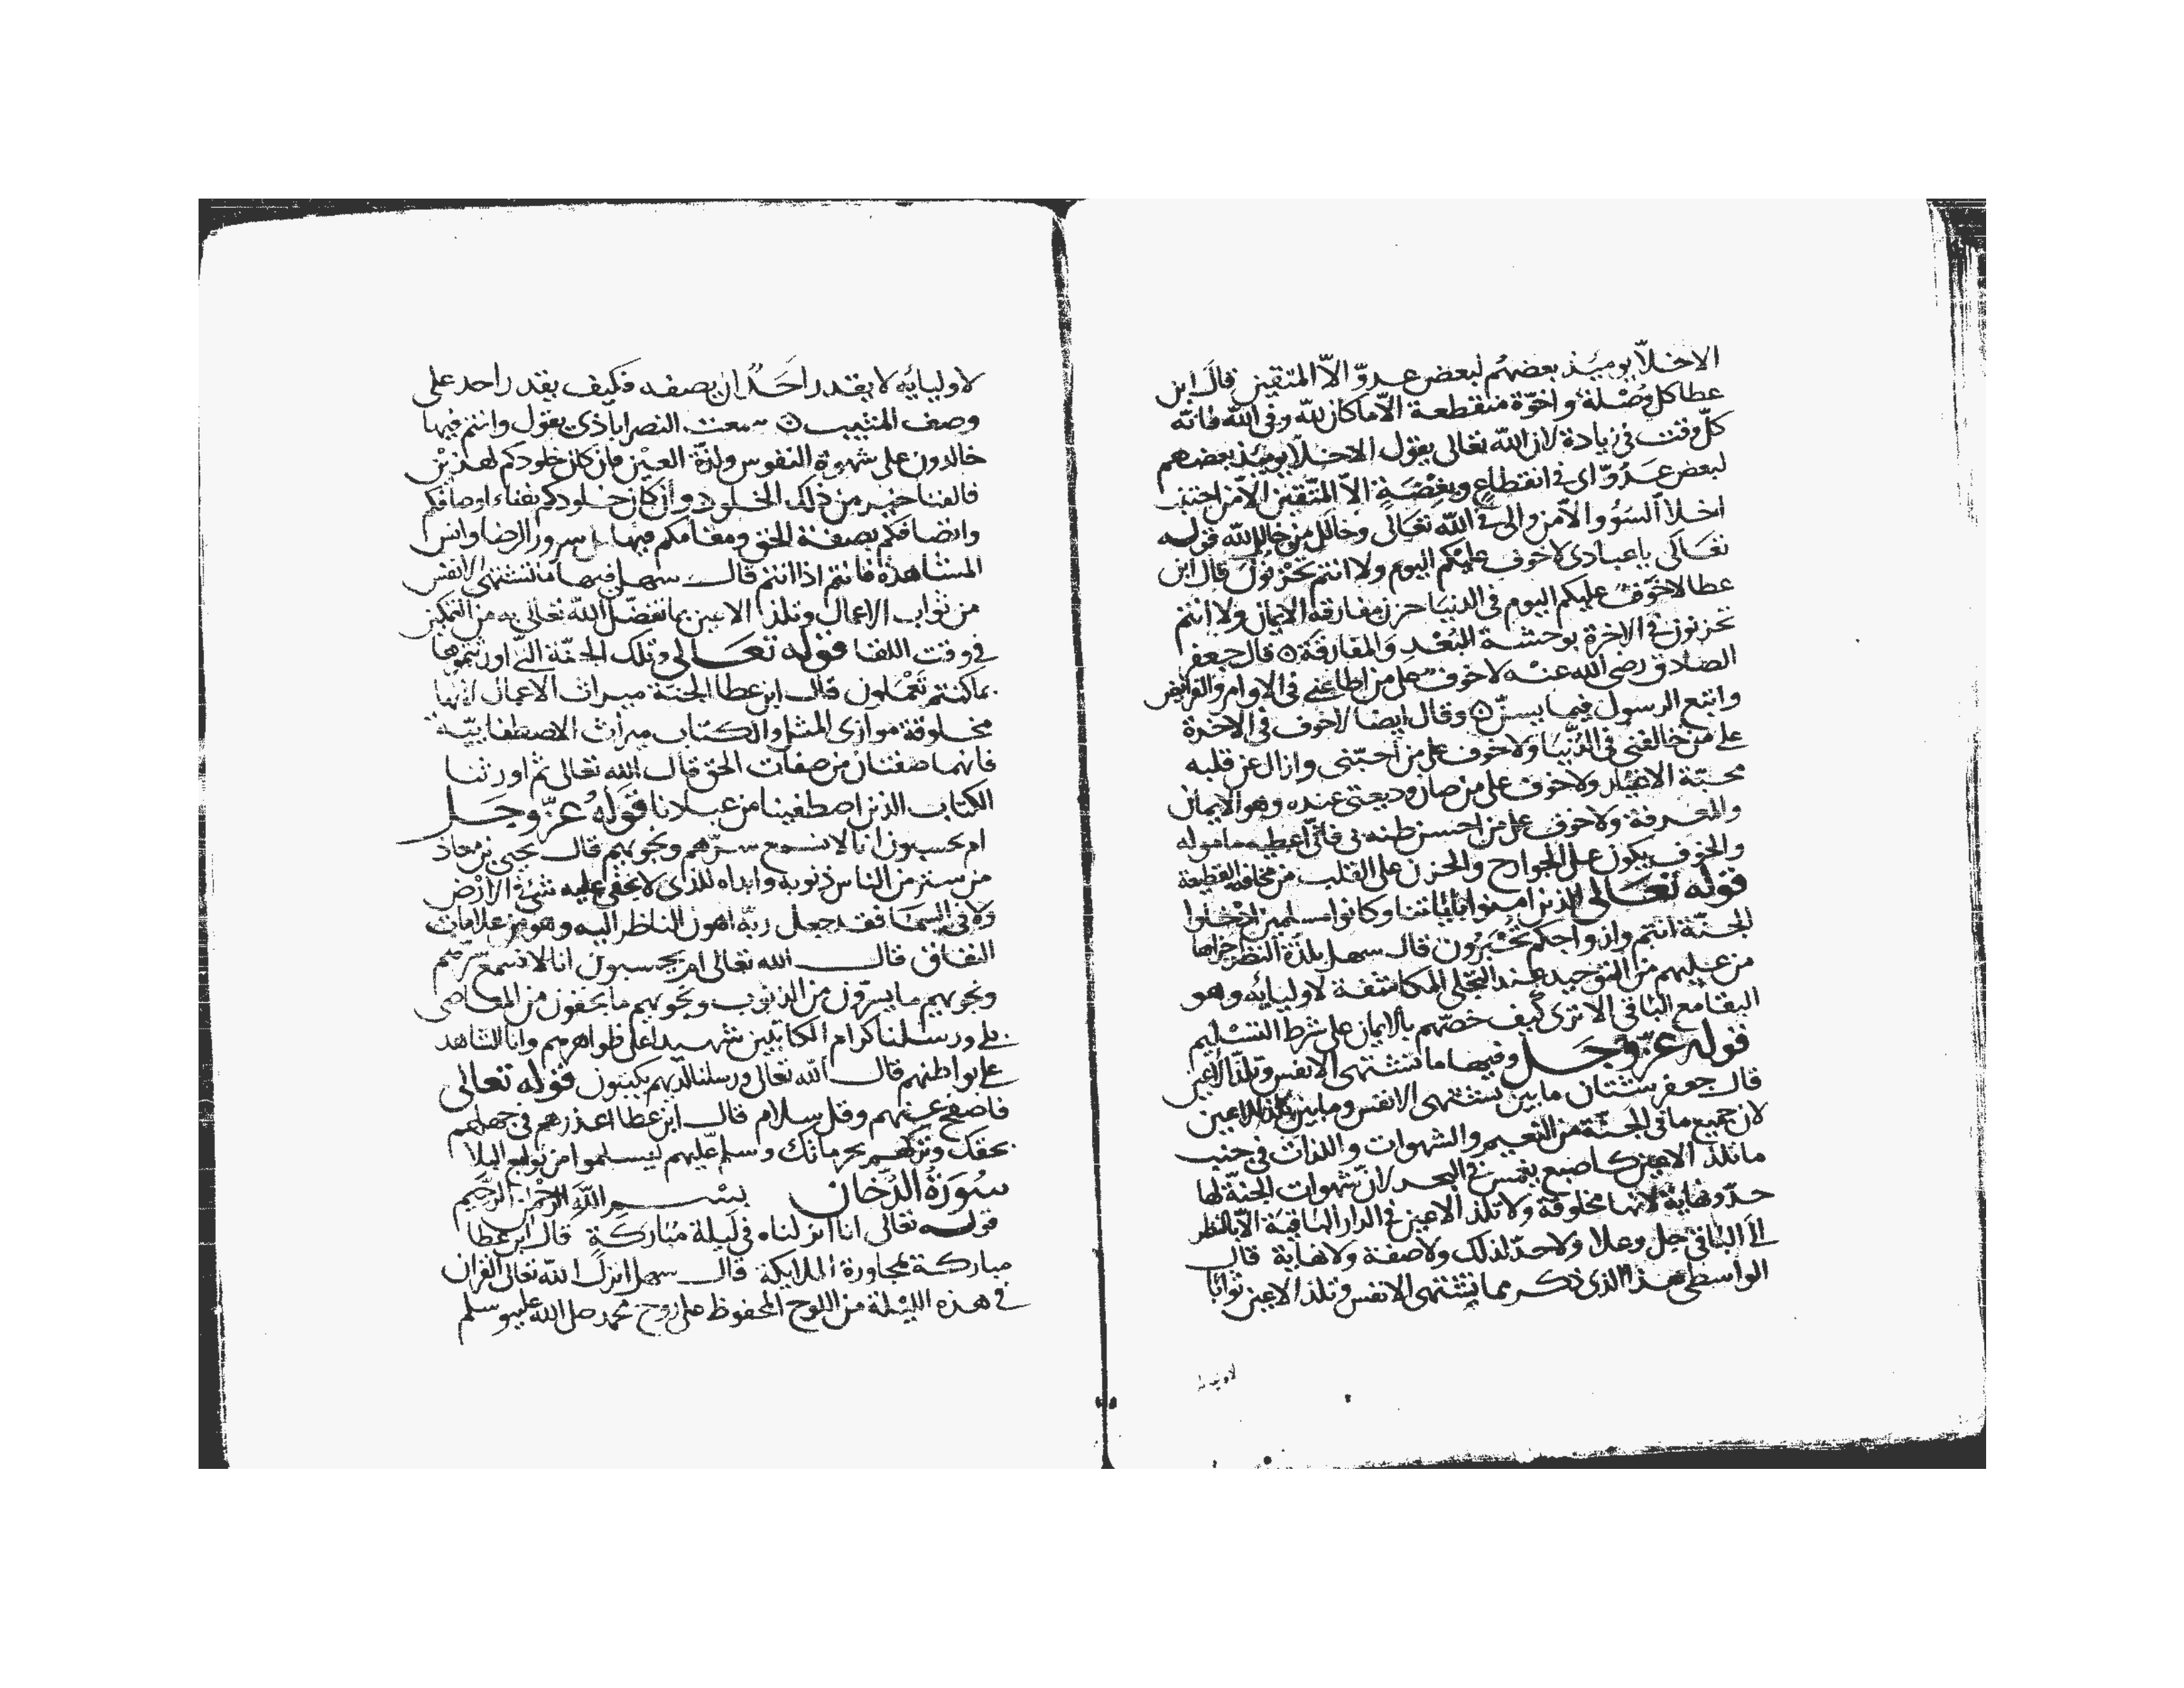 الاخلّا يوميذ بعضهم لبعض عدوّ الاّ المتقين قال ابن
عطا كل وُصْلة واخوّة منقطعة الاّ ما كان لله وفي الله فانه
كلّ وقت في زيادة لان الله تعالى يقول الاخلّا يوميذ بعضهم
لبعض عَدُوّ اى في انقطاع وبغضَةٍ الاّ المتّقين الاّ من اجتنب
اخلاّ السَوُ والاّ من والى في الله تعَالى وخالل من خالل لله قوله
تعَالى ياعبادى لا خوف عليكم اليوم ولا انتم تحْزنُونَ قال ابن
عطا لا خَوفٌ عليكم اليوم في الدنيَا حزن مفارقة الايمان ولا انتم
تحزنون في الاخرة بوحشة البُعْدِ وَالمفارقَة ۞ قال جعفر
الصادق رضى الله عنه لا خوف على من اطاعنى في الاوامر والفرايض
واتبع الرسول فيما يسنّ ۞ وقال ايضا لا خوف في الاخرة
على من خالفنى في الدُّنْيَا ولا خوف على من احبّنى وازال عن قلبه
محبّة الاغيار ولا خوف على من صان وديعتى عنده وهو الايمان
والمعرفة ولا خوف على من احسن ظنه بى فانّى اعطيه مامُوله
والخوف يكون على الجوارح والحزن على القلب من مخافة القطيعة
قوله تعَالى الذين امنوا باياتنا وكانوا مسلمين ادْخلوا
الجنّة انتم وازواجكم تُحْبَرُون قال سهل بلذّة النظر جزاها
من عليهم من التوحيد عند التجلى المكاشفة لاوليايه وهو
البقا مع الباقى الا ترى كيف خصّهم بالايمان على شرط التسْليم
قوله عزّ وجَل وفيها ما تشتهى الانفس وتلذّ الاعين
قال جعفر شتان ما بين تشتهى الانفس وما بين تلذ الاعين
لان جميع ما في الجنّة من النعيم والشهوات واللذات في جنب
ما تلذ الاعين كاصبع يغمس في البحر لانّ شهوات الجنة لها
حدّ ونهاية لانها مخلوقة ولا تلذ الاعين في الدار الباقية الا بالنظر
الىَ البَاقى جل وعلا ولا حدّ لذلك ولا صفة ولا نهاية قال
الواسطى هذا الذى ذكر مما تشتهى الانفس وتلذ الاعين ثوابا
لاوليايه لا يقدر احَدٌ ان يصفه فكيف يقدر احد على
وصف المثيب ۞ سمعت النصراباذى يقول وانتم فيها
خالدون على شهوة النفوس ولذّة العيْن فان كان خلودكم لهذيْن
فالفنا خير من ذلك الخلود وان كان خلودكم بفناء اوصافكم
واتصافكم بصفة الحق ومقامكم فيها على سرور الرضا وانس
المشاهدة فانتم اذا انتم قال سهل فيها ما تشتهى الانفس
من ثواب الاعمال وتلذ الاعين بما تفضّل الله تعالى به من التمكين
في وقت اللقا قوله تعَالى وتلك الجنّة التى اورثتموها
بما كنتم تعْملون قال ابن عطا الجنة ميراث الاعمال لانها
مخلوقة موازى المثل والكتاب ميراث الاصطفابيّة
فانهما صفتان من صفات الحق قال الله تعالى ثم اورثنا
الكتاب الذين اصطفينا من عبادنا قولهُ عزّ وجَل
ام يحسبون انا لا نسمع سرّهم ونجويهم قال يحيى بن معاذ
من ستر من الناس ذنوبه وابداه للذى لا يخفى عليه شئ في الارْض
ولا في السمَا فقد جعل ربّه اهون الناظر اليه وهو من علامات
النفاق قال الله تعالى ام يحسبون انا لا نسمع سرّهم
ونجويهم ما يسرّون من الذنوب ونجويهم ما يخفون من المعاصى
بلى ورسلنا كرام الكاتبين شهيدا على ظواهرهم وانا الشاهد
على بواطنهم قال الله تعالى ورسلنا لديهم يكتبون قوله تعالى
فاصفح عنهم وقل سلام قال ابن عطا اعذرهم في جهلهم
بحقك وتركهم بحرماتك وسلم عليهم ليسلموا من توابع البلا
سُورَةُ الدُّخان بسْــم اللَّه الرحْمن الرحَيم
قوله تعالى انا انزلناه في ليلة مُبَارَكَةٍ قال ابن عطا
مباركة لمجاورة الملايكة قال سهل انزل الله تعالى القران
في هذه الليْلة من اللوح المحفوظ على روح محمد صلى الله عليه وسلم